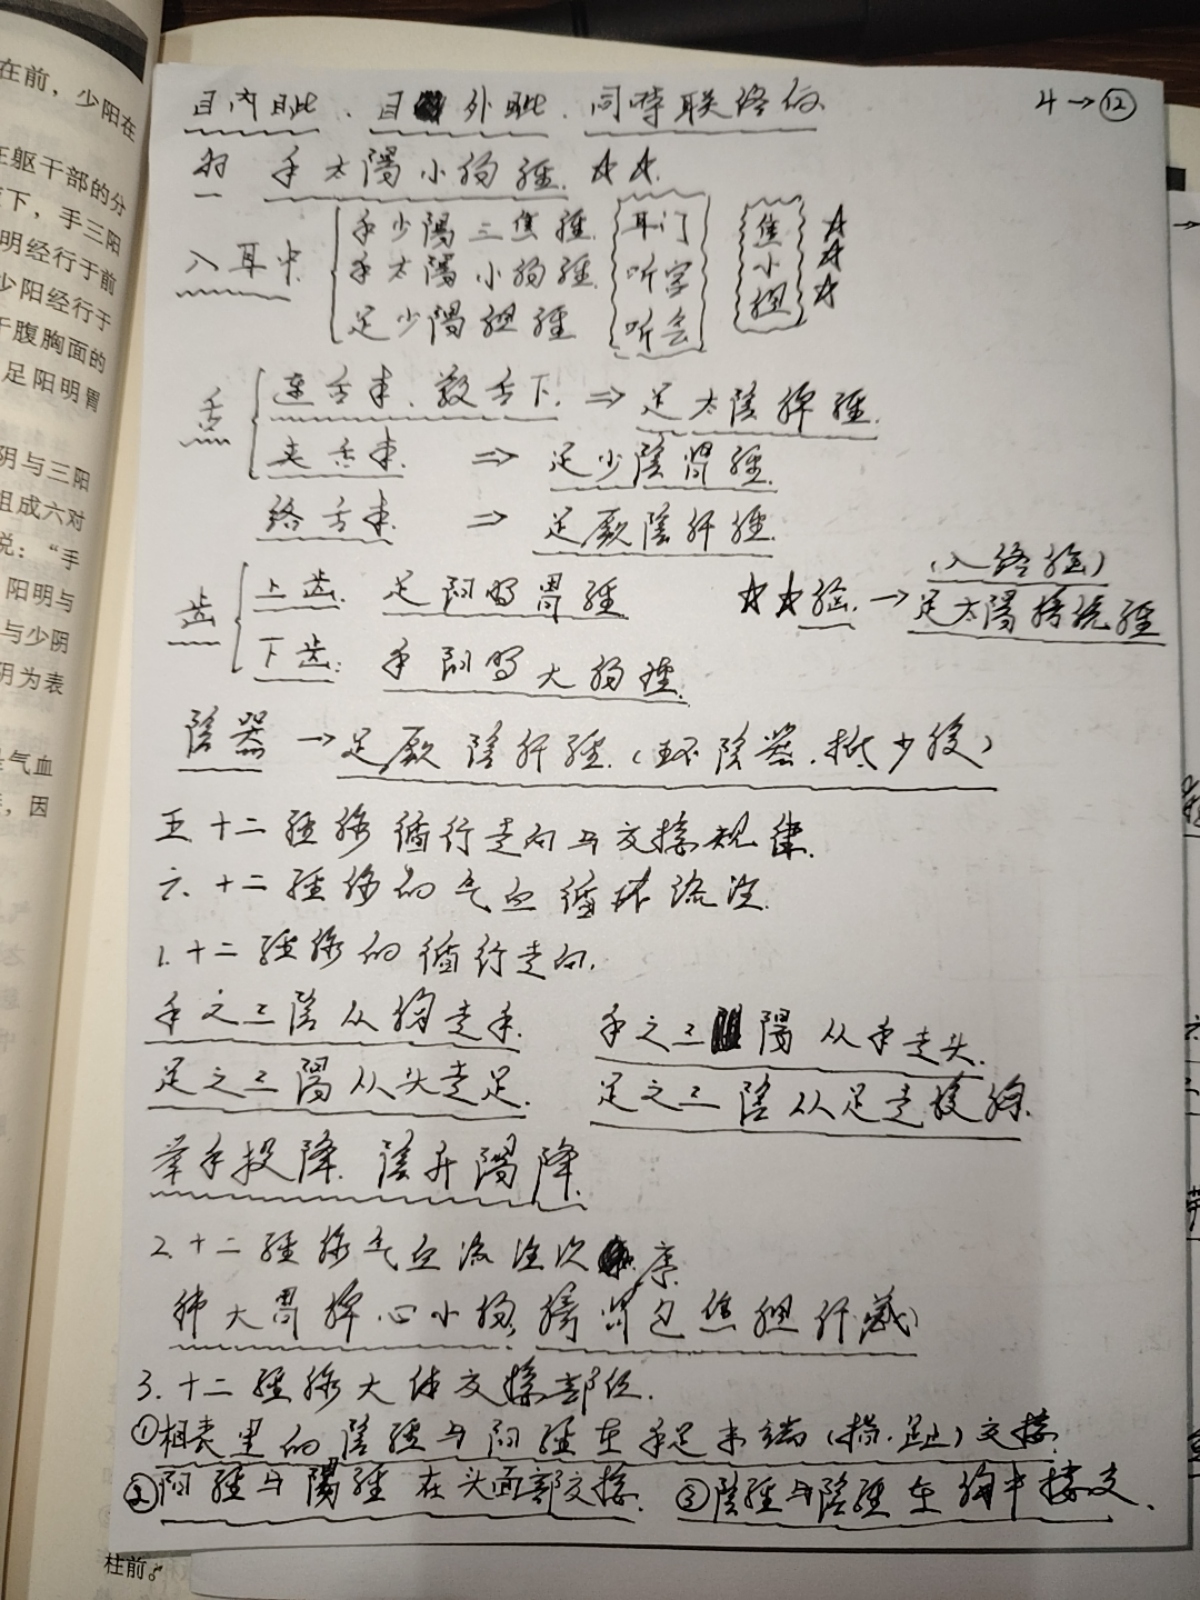 在前，少阳在
在躯干部的分
下，手三阳
明经行于前
少阳经行于
于腹胸面的
足阳明胃
阴与三阳
组成六对
说：“手
阳明与
与少阴
阴为表
气血
，因
柱前。
4→⑫
目内眦、目外眦、同時联络的
为 手太陽小腸經 ☆☆
入耳中 手少陽三焦經 耳门 焦 ☆
手太陽小腸經 听宫 小 ☆
足少陽胆經 听会 胆 ☆
舌 连舌本、散舌下 ⇒ 足太陰脾經.
夹舌本 ⇒ 足少陰腎經.
络舌本 ⇒ 足厥陰肝經.
齿 上齿. 足阳明胃經
下齿: 手阳明大腸經.
☆☆脑 → (入络脑)
足太陽膀胱經
陰器 → 足厥陰肝經.(环陰器.抵少腹)
五.十二經脉循行走向与交接规律.
六.十二經脉的气血循环流注.
1.十二經脉的循行走向.
手之三陰从胸走手. 手之三陽从手走头.
足之三陽从头走足. 足之三陰从足走腹胸.
举手投降.陰升陽降.
2.十二經脉气血流注次序.
肺大胃脾心小腸,膀腎包焦胆肝藏
3.十二經脉大体交接部位.
①相表里的陰經与阳經在手足末端(指.趾)交接.
②阳經与陽經在头面部交接. ③陰經与陰經在胸中接交.